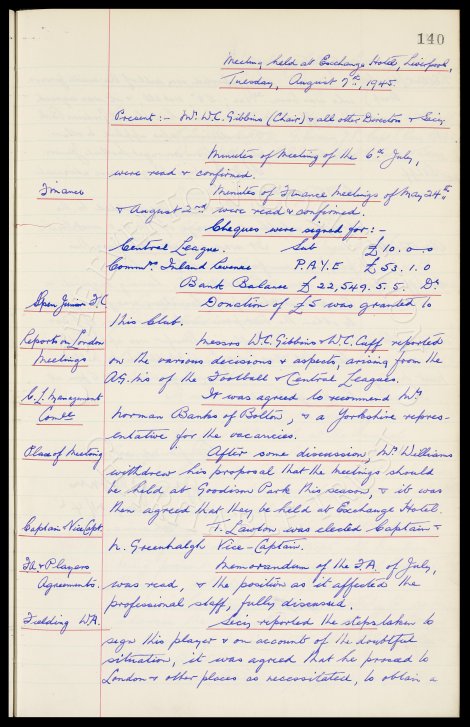 140
Meeting held at Exchange Hotel, Liverpool,
Tuesday, August 7th, 1945.
Present :- Mr. W.C. Gibbins (Chair) & all other Directors & Secy.
Minutes of Meeting of the 6th July,
were read & confirmed.
Finance
Minutes of Finance Meetings of May 24th
& August 2nd were read & confirmed.
Cheques were signed for :-
Central League. Sub £10. 0. 0
Commrs Inland Revenue P.A.Y.E £53. 1. 0
Bank Balance £22,549. 5. 5. Dr
Open Junior F.C
Donation of £5 was granted to
this Club.
Reports on London
Meetings
Messrs W.C. Gibbins & W.C. Cuff reported
on the various decisions & aspects, arising from the
A.G.Ms of the Football & Central Leagues.
C.L. Management
Comtte
It was agreed to recommend Mr
Norman Banks of Bolton, & a Yorkshire repres-
entative for the vacancies.
Place of Meeting
After some discussion, Mr Williams
withdrew his proposal that the meetings should
be held at Goodison Park this season, & it was
then agreed that they be held at Exchange Hotel.
Captain & Vice Capt.
T. Lawton was elected Captain &
N. Greenhalgh Vice-Captain.
FA & Players
Agreements.
Memorandum of the F.A. of July,
was read, & the position as it affected the
professional staff, fully discussed.
Fielding W.A.
Secy reported the steps taken to
sign this player & on account of the doubtful
situation, it was agreed that he proceed to
London & other places as necessitated, to obtain a